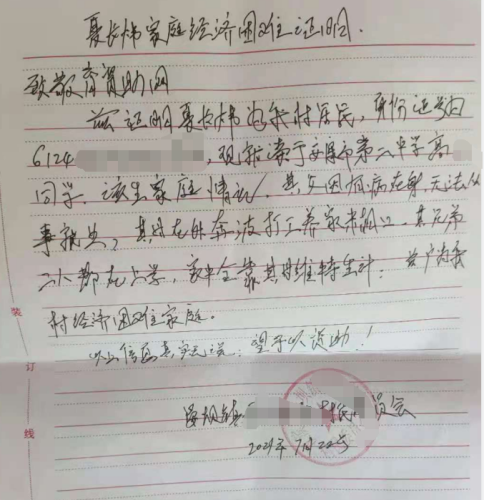 夏长炜家庭经济困难证明.
致教育资助网
兹证明夏长炜为我村居民，身份证号为
6124，现就读于安康市第二中学高
同学、该生家庭情况、其父因有病在身无法从
事就业，其母在外奔波打工养家糊口、其兄弟
二人都在上学，家中全靠其母维持生计：属我
村经济困难家庭。
以上信息真实无误，望予以资助！
镇村民委员会
2021年7月22号
装
订
线